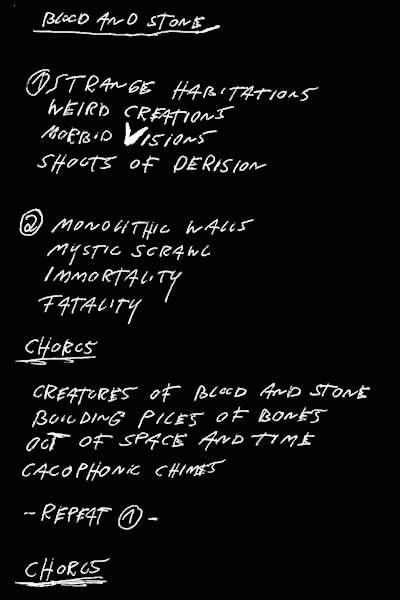 BLOOD AND STONE
① STRANGE HABITATIONS
WEIRD CREATIONS
MORBID VISIONS
SHOUTS OF DERISION
② MONOLITHIC WALLS
MYSTIC SCRAWL
IMMORTALITY
FATALITY
CHORUS
CREATURES OF BLOOD AND STONE
BUILDING PILES OF BONES
OUT OF SPACE AND TIME
CACOPHONIC CHIMES
-REPEAT ①-
CHORUS